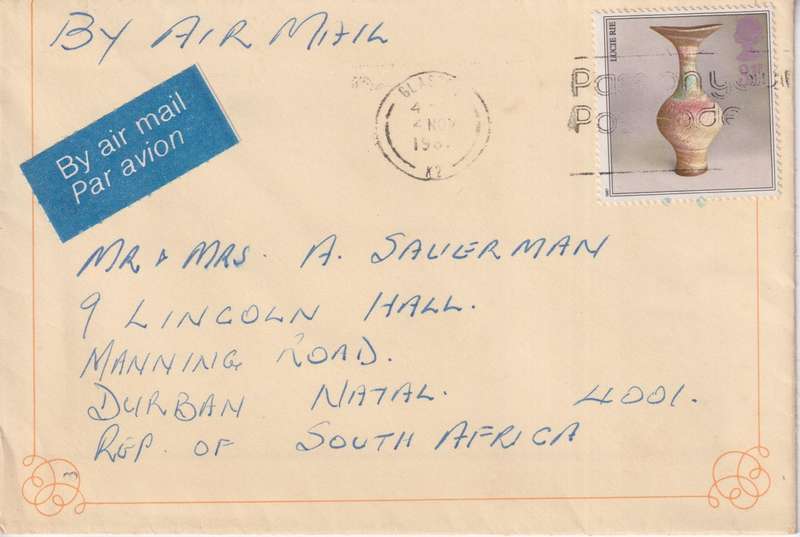 By AIR MAIL
LUCIE RIE
By air mail
Par avion
GLASG
4
2 NOV
198
X2
Pass on your
Postcode
MR & MRS. A. SAUERMAN
9 LINCOLN HALL.
MANNING ROAD.
DURBAN NATAL. 4001.
REP. OF SOUTH AFRICA